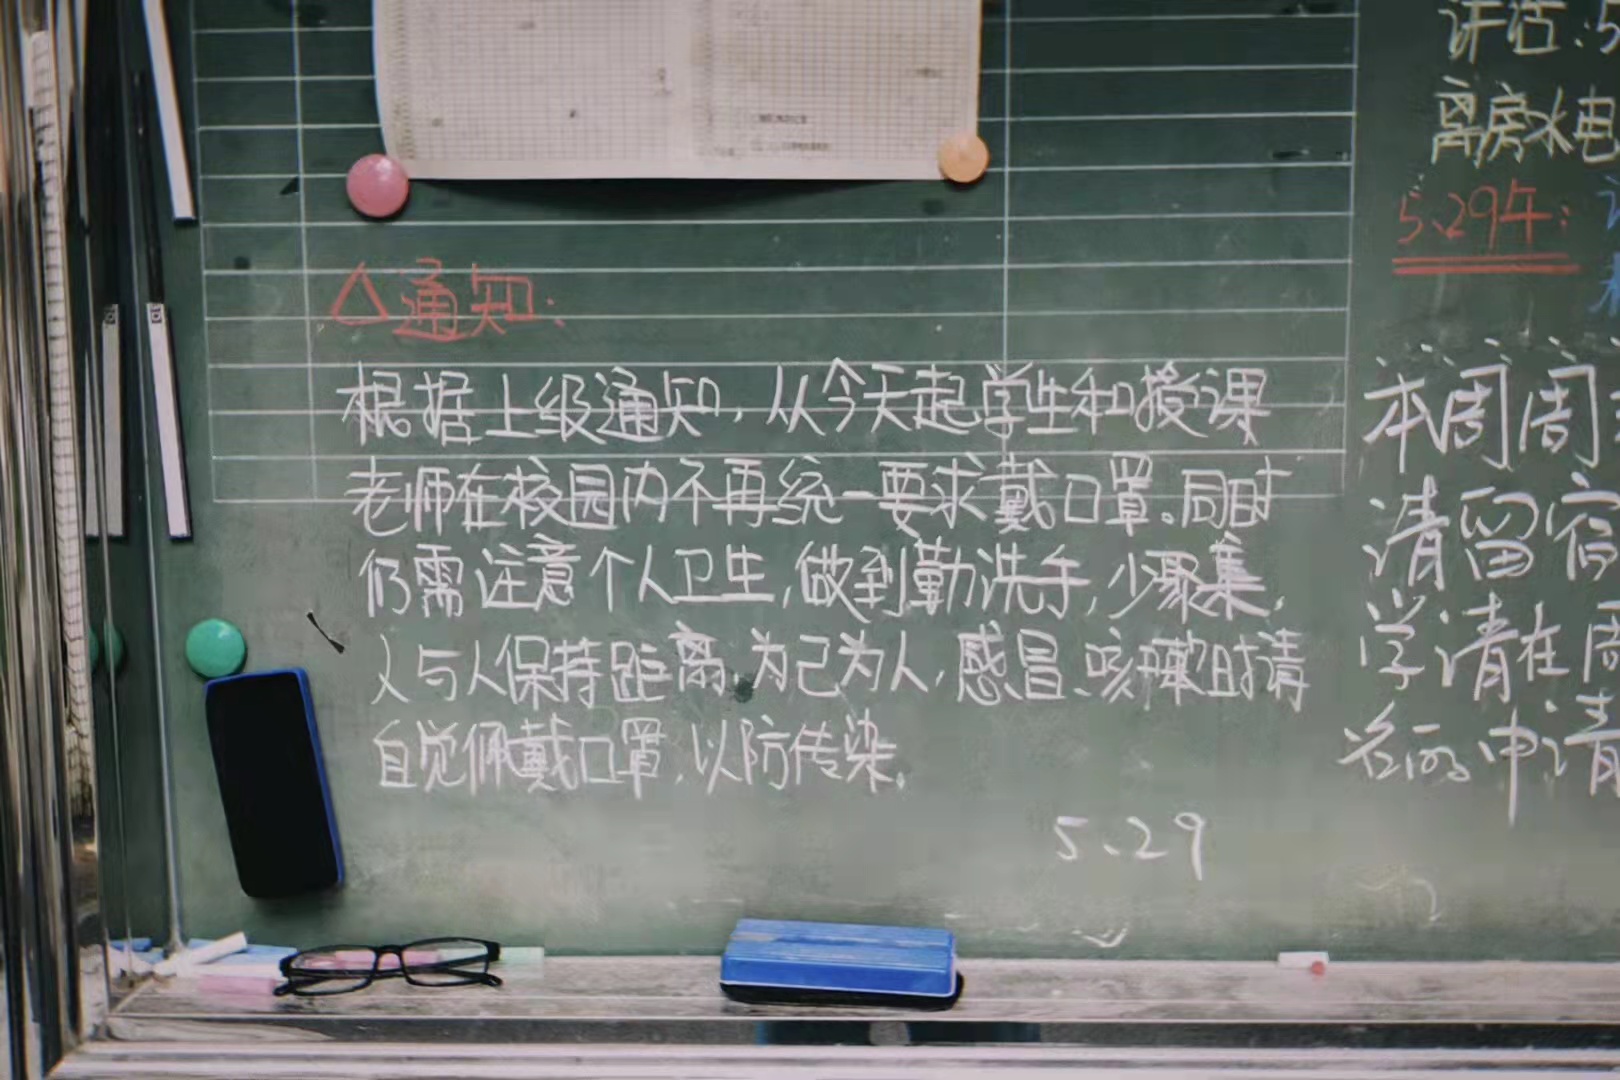 △通知:
根据上级通知,从今天起学生和授课
老师在校园内不再统一要求戴口罩。同时
仍需注意个人卫生,做到勤洗手,少聚集,
人与人保持距离,为己为人,感冒、咳嗽时请
自觉佩戴口罩,以防传染.
5、29
讲话:5
离房水电
5、29午:
本周周
请留宿
学请在周
申请